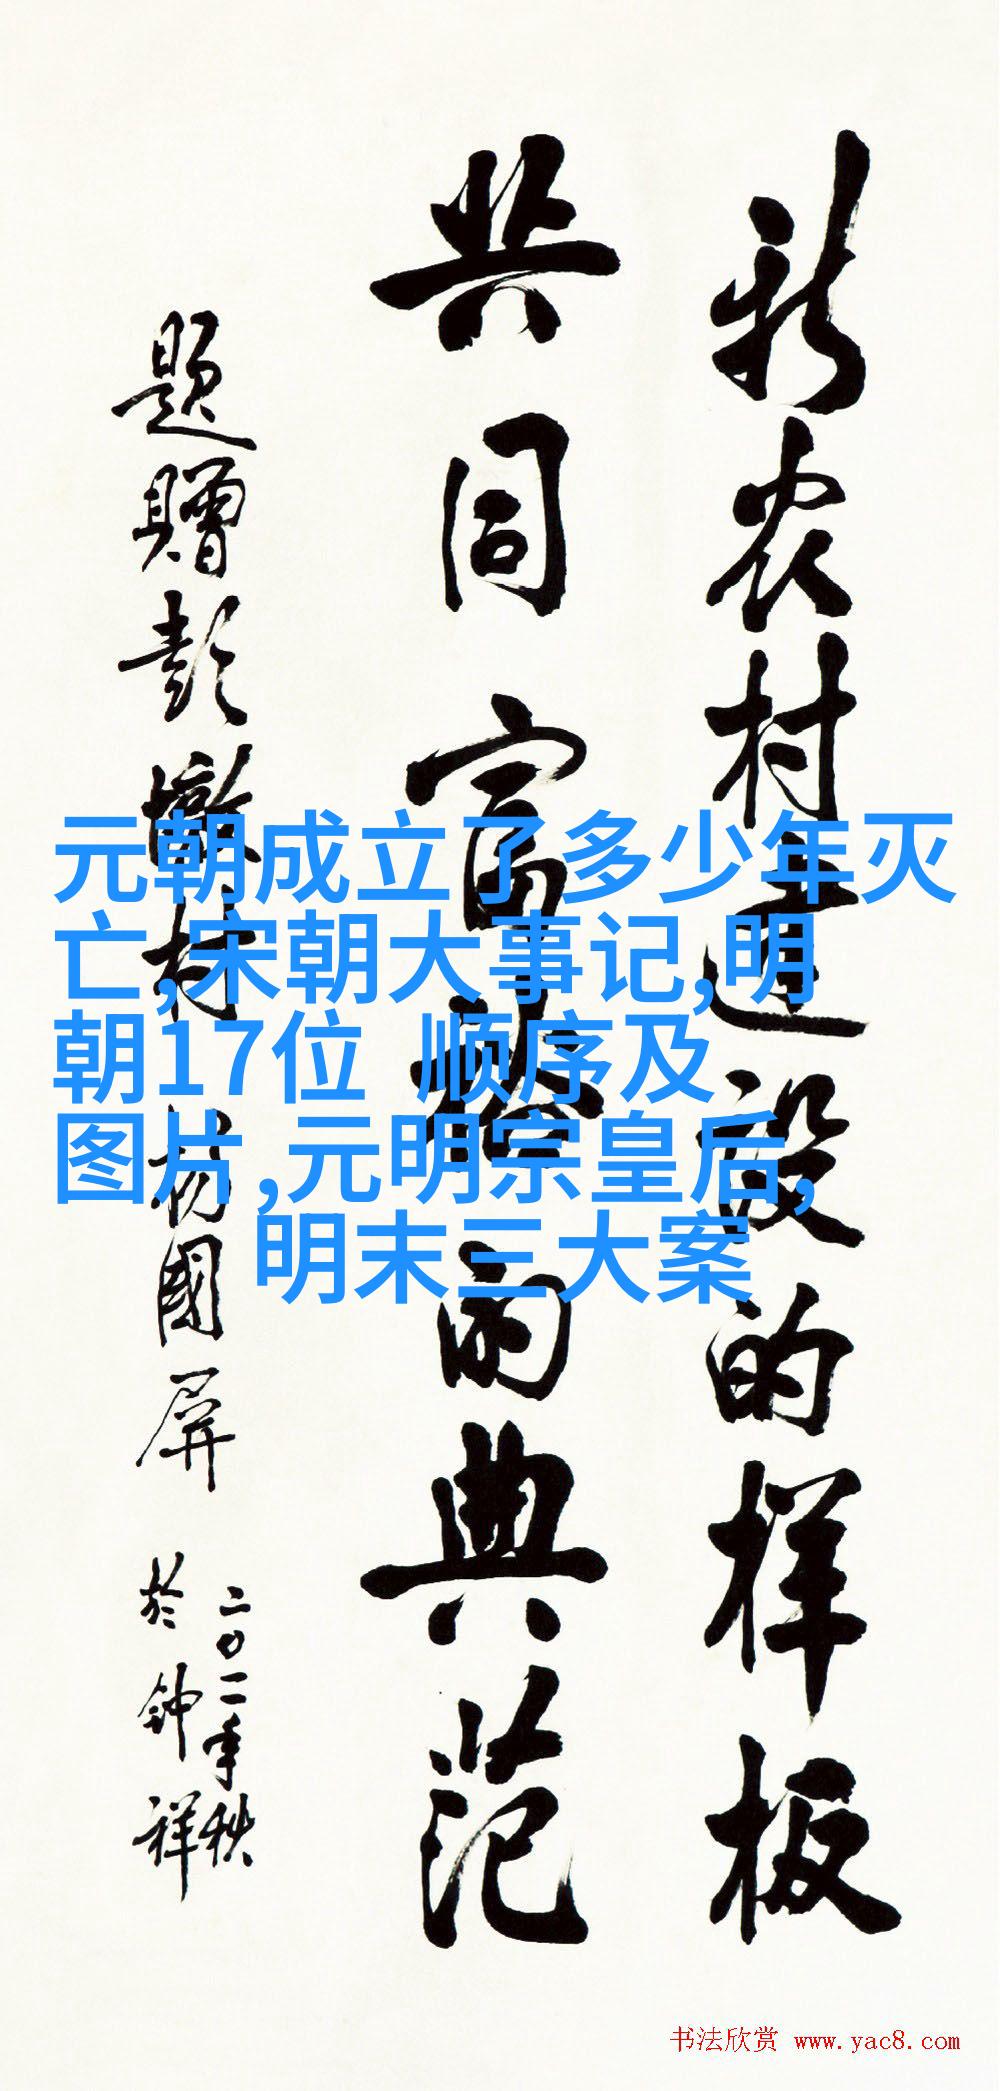 新农村建设的样板
共同富裕的典范
题赠彭墩村 杨国屏
二〇一一年秋
於钟祥
元朝成立了多少年灭
亡,宋朝大事记,明
朝17位 顺序及
图片,元明宗皇后,
明末三大案
书法欣赏 www.yac8.com